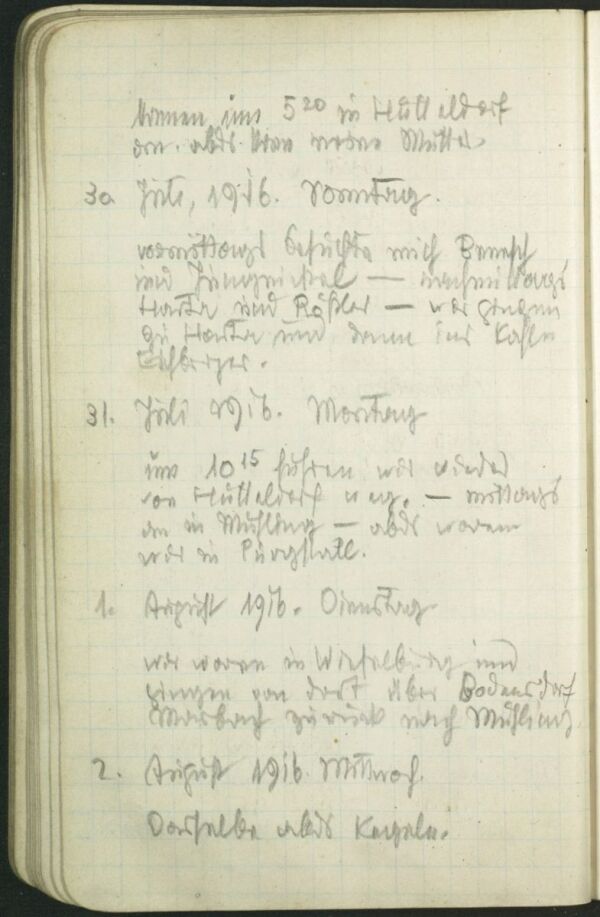 kamen um 5 20 in Hütteldorf
an. abds kam meine Mutter.
30. Juli, 1916. Sonntag.
vormittags besuchte mich Benesch
und Jungnickel — nachmittags
Harta und Rößler — wir gingen
zu Harta und dann ins Kaffe
Eichberger.
31. Juli 1916. Montag
um 10 15 fuhren wir wieder
von Hütteldorf weg. — mittags
an in Mühling — abds waren
wir in Purgstall.
1. August 1916. Dienstag
wir waren in Wieselburg und
gingen von dort über Bodensdorf
Marbach zurück nach Mühling.
2. August 1916. Mittwoch.
Dasselbe abds Kegeln.